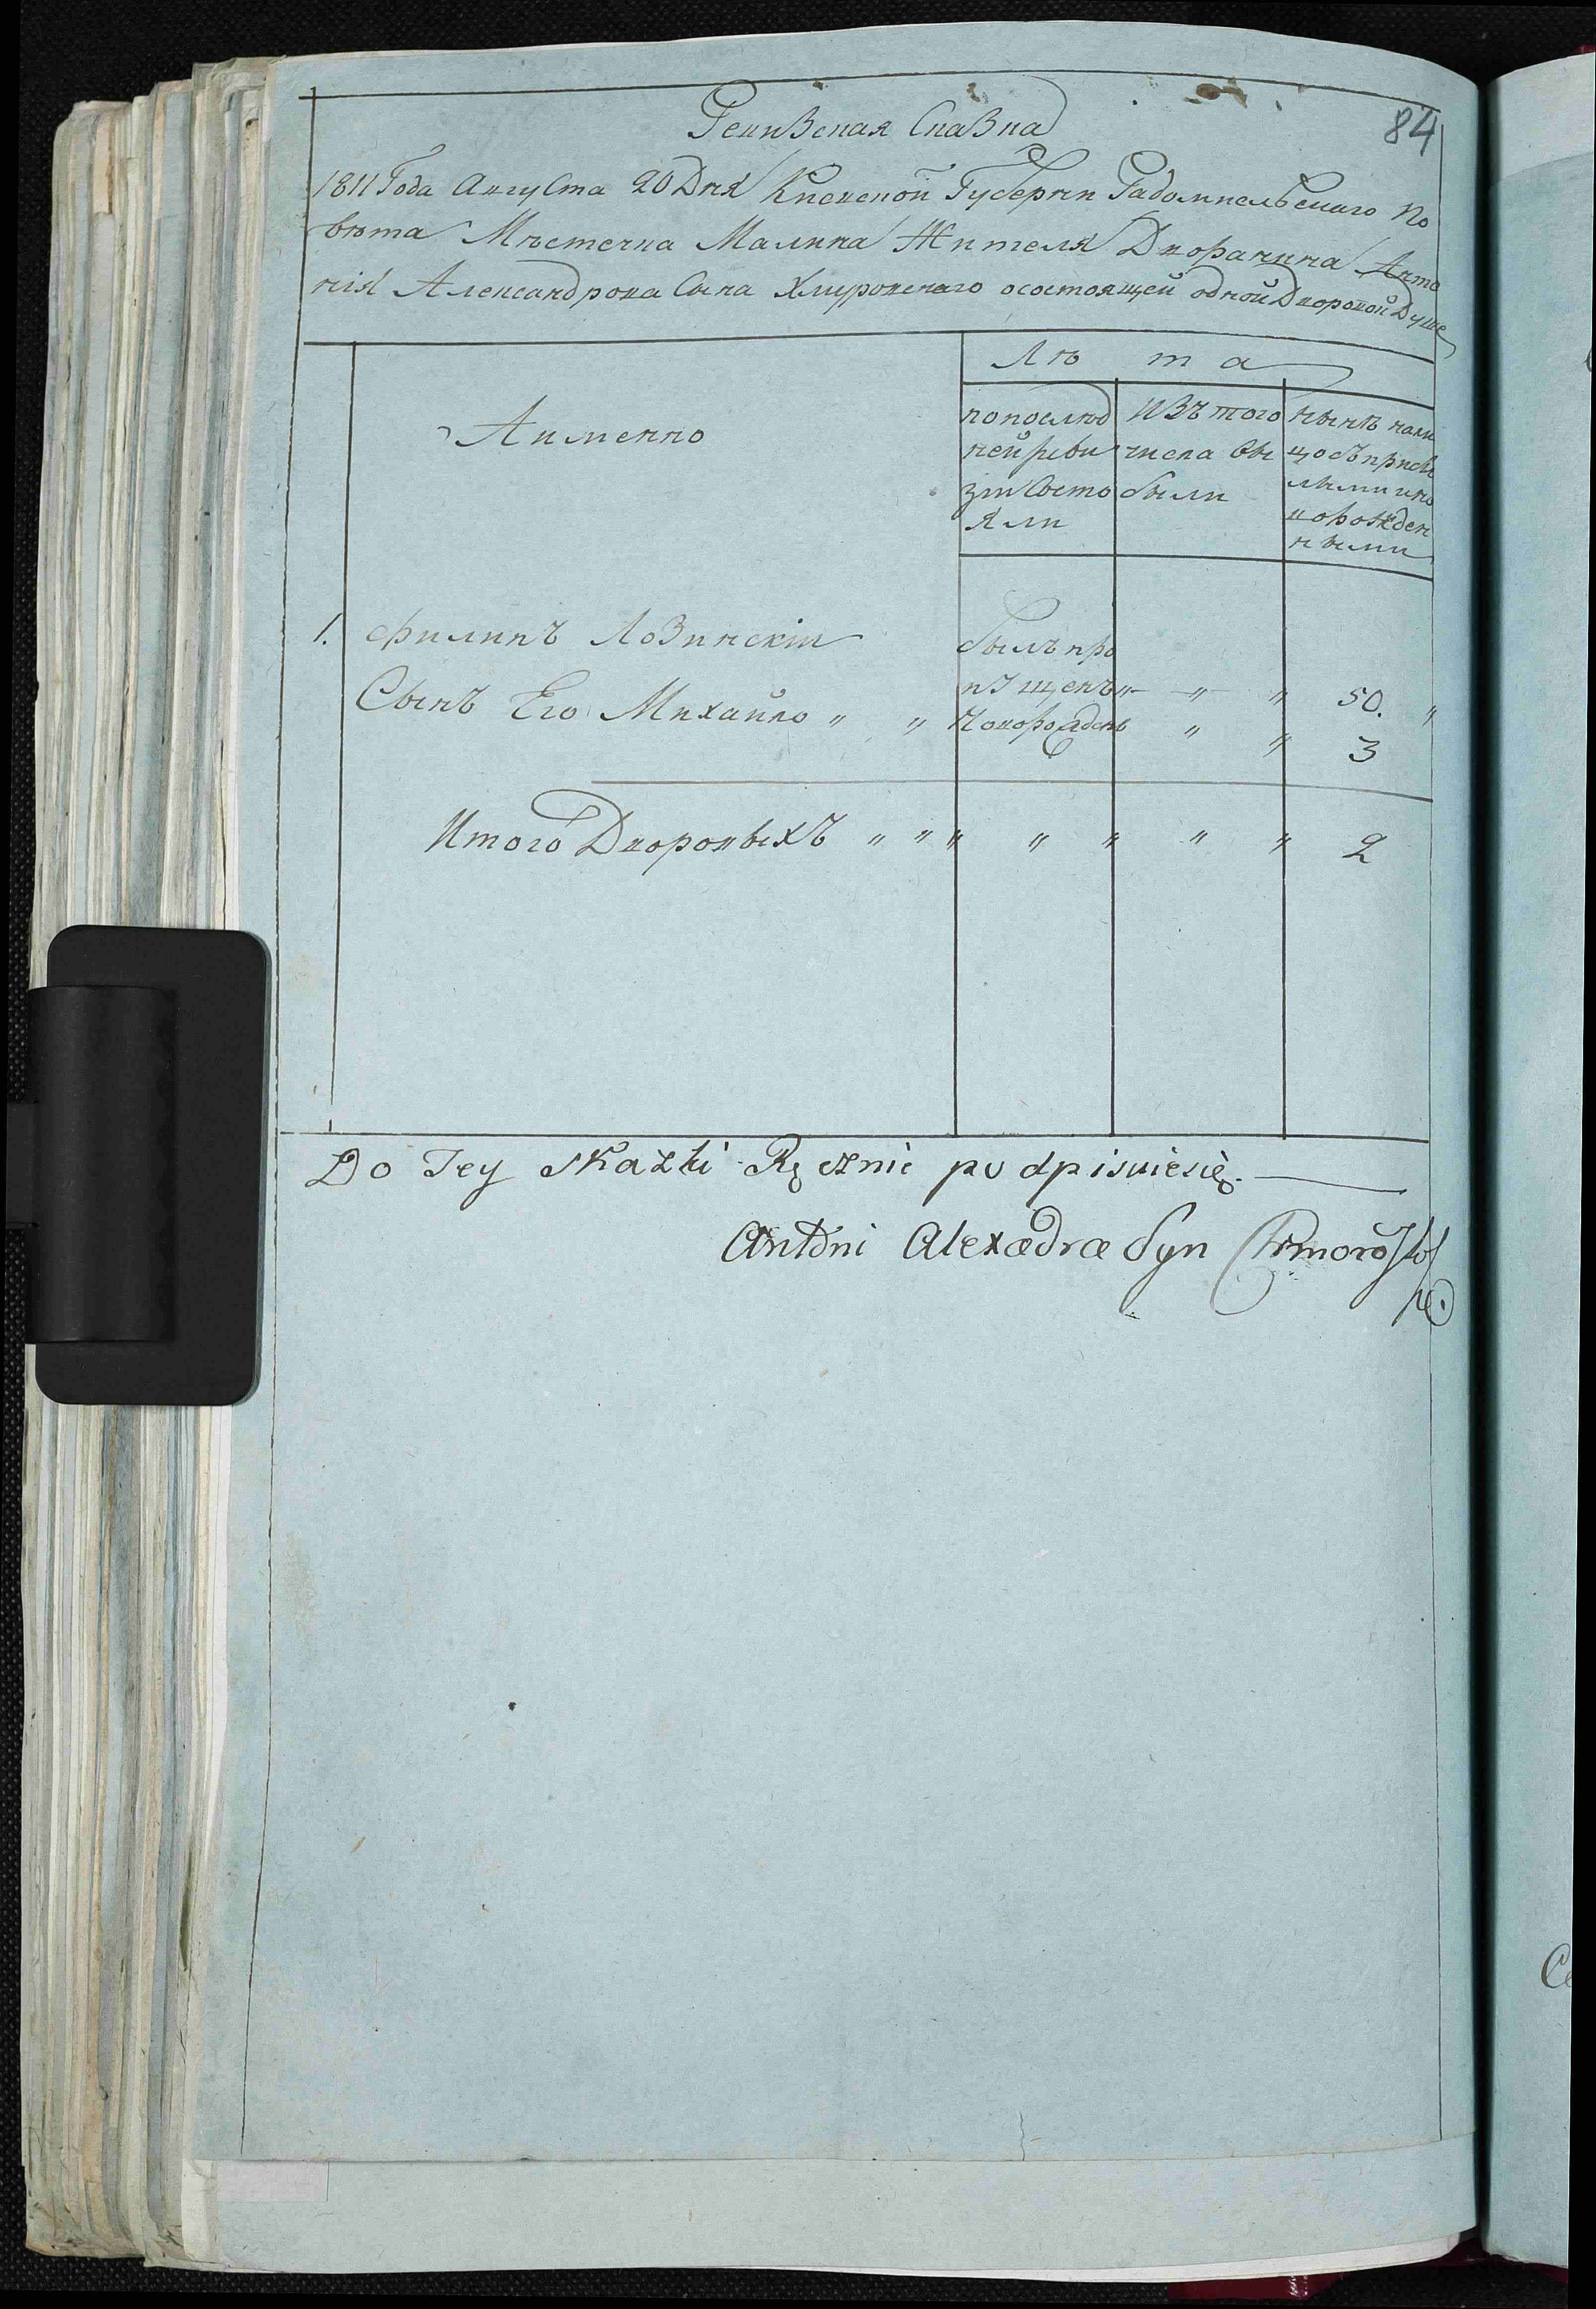 84
Ревизская Сказка
1811 Года Августа 20 Дня Киевской Губернии Радомисльскаго По
вѣта Мѣстечка Малина Жителя Дворанина Анто
нія Александрова Сына Хмуровскаго осостоящей одной Дворовой Душе
Лѣта
Аименно
попослѣд изътого нынѣ нали
ней реви числа вы цо съ
зіи Состо были
яли ворожден
ными
1. Филипъ Лозинскій былъ про
пущенъ " " " 50. "
Сынъ Его Михайло " " Новорожденъ " " 3
Итого Дворовыхъ " " " " " " " 2
Do Tey Skazki Ręcznie podpisuiesię.
Antoni Alexadra Syn